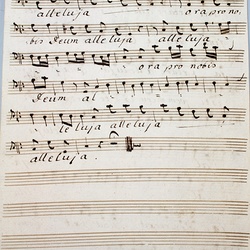 alleluja ora pro no,
bis Deum alleluja alleluja
ora pro nobis
Deum al
le luja alleluja
alleluja.